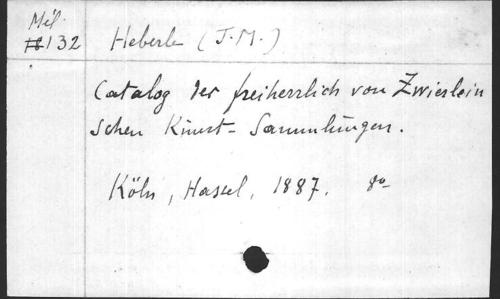 Mél.
132 Heberle (J.M.)
Catalog der freiherrlich von Zwierlein
schen Kunst-Sammlungen.
Köln, Hassel, 1887. 8º